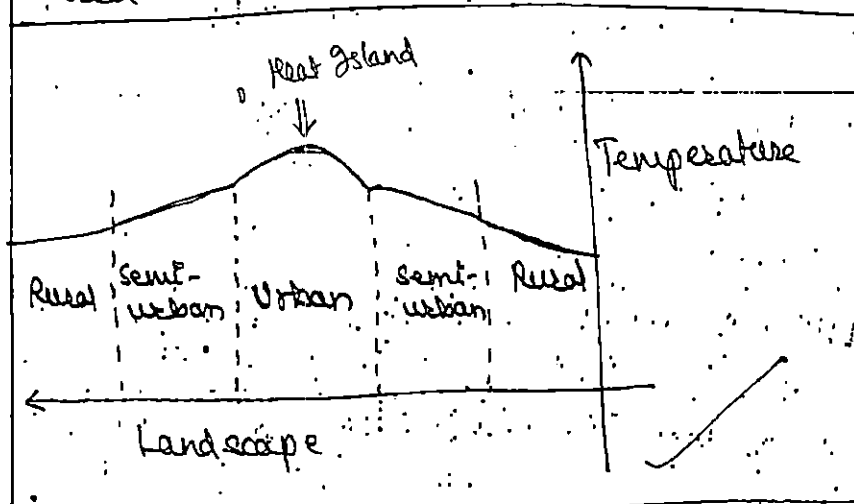 Heat Island
Temperature
Rural
semi-
urban
Urban
semi-
urban
Rural
Landscape